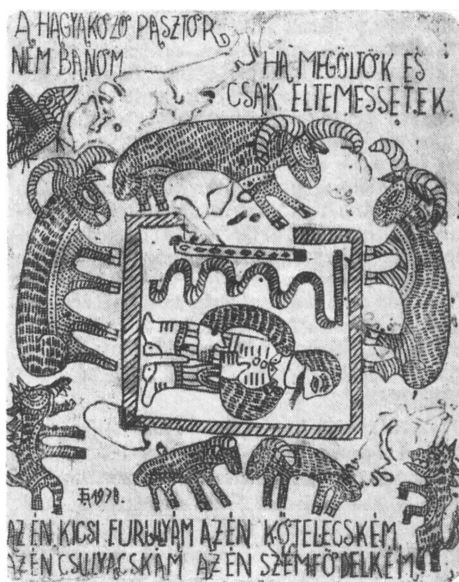 A HAGYAKOZÓ PASZTOR
NEM BANOM
HA MEGÖLTÖK ÉS
CSAK ELTEMESSETEK
1978.
AZ ÉN KICSI FURULYÁM AZ ÉN KÖTELECSKÉM,
AZ ÉN CSULYACSKÁM AZ ÉN SZEMFÖDELKÉM.